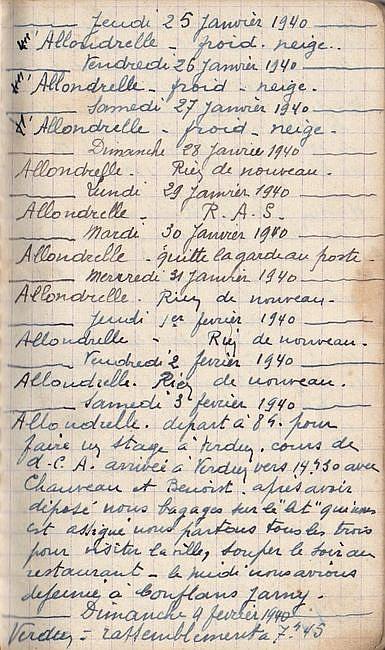 Jeudi 25 Janvier 1940
Allondrelle - froid. neige..
Vendredi 26 Janvier 1940
Allondrelle - froid - neige.
Samedi 27 Janvier 1940
Allondrelle - froid - neige.
Dimanche 28 Janvier 1940
Allondrelle. Rien de nouveau.
Lundi 29 Janvier 1940
Allondrelle - R.A.S.
Mardi 30 Janvier 1940
Allondrelle - quitte la garde au poste -
Mercredi 31 Janvier 1940
Allondrelle. Rien de nouveau -
Jeudi 1er fevrier 1940
Allondrelle - Rien de nouveau -
Vendredi 2 fevrier 1940
Allondrelle. Rien de nouveau.
Samedi 3 fevrier 1940
Allondrelle. depart à 8h. pour
faire un stage à Verdun. cours de
d.C.A. arrivée à Verdun vers 14h30 avec
Chauveau et Benoist. après avoir
déposé nous bagages sur le "lit" qui nous
est assigné nous partons tous les trois
pour visiter la ville, souper le soir au
restaurant - le midi nous avions
dejeuné à Conflans Jarny.
Dimanche 4 fevrier 1940
Verdun - rassemblement à 7h45